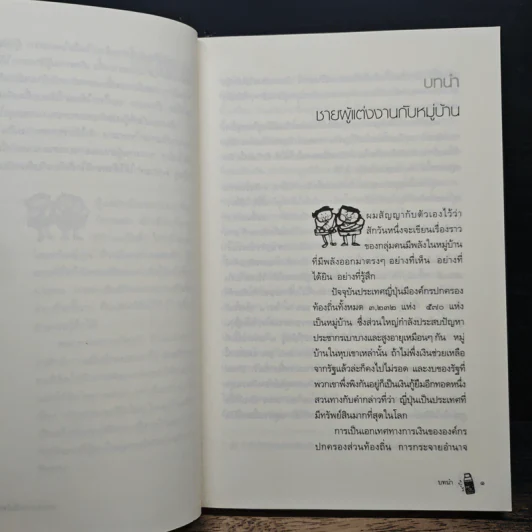 บทนำ
ชายผู้แต่งงานกับหมู่บ้าน
ผมสัญญากับตัวเองไว้ว่า
สักวันหนึ่งจะเขียนเรื่องราว
ของกลุ่มคนมีพลังในหมู่บ้าน
ที่มีพลังออกมาตรงๆ อย่างที่เห็น อย่างที่
ได้ยิน อย่างที่รู้สึก
ปัจจุบันประเทศญี่ปุ่นมีองค์กรปกครอง
ท้องถิ่นทั้งหมด ๓,๒๓๒ แห่ง ๕๗๐ แห่ง
เป็นหมู่บ้าน ซึ่งส่วนใหญ่กำลังประสบปัญหา
ประชากรเบาบางและสูงอายุเหมือนๆ กัน หมู่
บ้านในหุบเขาเหล่านั้น ถ้าไม่พึ่งเงินช่วยเหลือ
จากรัฐแล้วล่ะก็คงไปไม่รอด และงบของรัฐที่
พวกเขาพึ่งพิงกันอยู่ก็เป็นเงินกู้ยืมอีกทอดหนึ่ง
สวนทางกับคำกล่าวที่ว่า ญี่ปุ่นเป็นประเทศที่
มีทรัพย์สินมากที่สุดในโลก
การเป็นเอกเทศทางการเงินขององค์กร
ปกครองส่วนท้องถิ่น การกระจายอำนาจ
บทนำ ๑